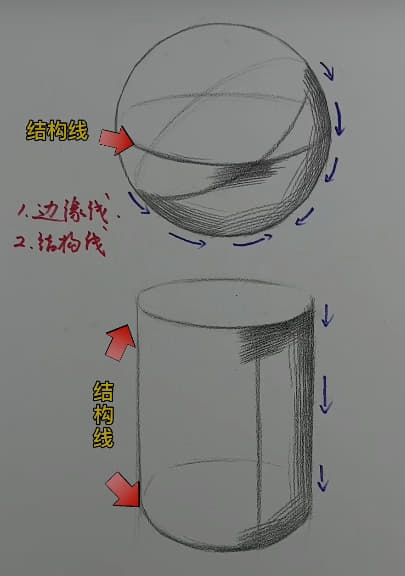 结构线
1.边缘线、
2.结构线
结构线